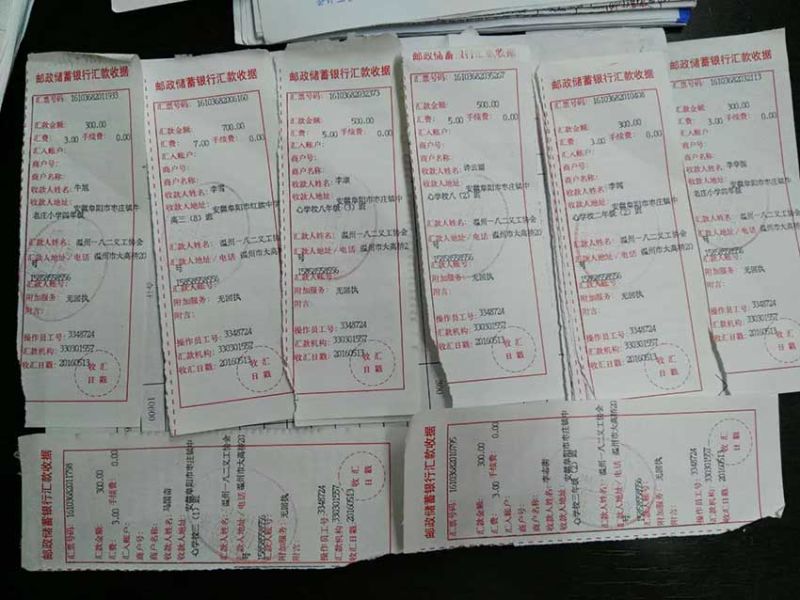 邮政储蓄银行汇款收据
汇票号码: 16103682011933
汇款金额: 300.00
汇费: 3.00 手续费: 0.00
汇入帐户:
商户号:
商户名称:
收款人姓名: 牛旭
收款人地址: 安徽阜阳市枣庄镇牛
老庄小学四年级
汇款人姓名: 温州一八二义工协会
汇款人地址/电话 温州市大高桥20
号
15858558556
汇款人账号:
附加服务: 无回执
附言:
操作员工号: 3348724
汇款机构: 330301957
收汇日戳: 20160513
收汇
日戳
邮政储蓄银行汇款收据
汇票号码: 16103682006160
汇款金额: 700.00
汇费: 7.00 手续费: 0.00
汇入帐户:
商户号:
商户名称:
收款人姓名: 李雪
收款人地址: 安徽阜阳市红旗中学
高三(8)班
汇款人姓名: 温州一八二义工协会
汇款人地址/电话 温州市大高桥20
号
15858558556
汇款人账号:
附加服务: 无回执
附言:
操作员工号: 3348724
汇款机构: 330301957
收汇日戳: 20160513
收汇
日戳
邮政储蓄银行汇款收据
汇票号码: 16103682032373
汇款金额: 500.00
汇费: 5.00 手续费: 0.00
汇入帐户:
商户号:
商户名称:
收款人姓名: 李
收款人地址: 安徽阜阳市枣庄镇中
心学校八年级(3)班
汇款人姓名: 温州一八二义工协会
汇款人地址/电话 温州市大高桥20
号
15858558556
汇款人账号:
附加服务: 无回执
附言:
操作员工号: 3348724
汇款机构: 330301957
收汇日戳: 20160513
收汇
日戳
邮政储蓄银行汇款收据
汇票号码: 16103682035267
汇款金额: 500.00
汇费: 5.00 手续费: 0.00
汇入帐户:
商户号:
商户名称:
收款人姓名: 许云
收款人地址: 安徽阜阳市枣庄镇中
心学校八(2)班
汇款人姓名: 温州一八二义工协会
汇款人地址/电话 温州市大高桥20
号
15858558556
汇款人账号:
附加服务: 无回执
附言:
操作员工号: 3348724
汇款机构: 330301957
收汇日戳: 20160513
收汇
日戳
邮政储蓄银行汇款收据
汇票号码: 16103682010408
汇款金额: 300.00
汇费: 3.00 手续费: 0.00
汇入帐户:
商户号:
商户名称:
收款人姓名: 李
收款人地址: 安徽阜阳市枣庄镇中
心学校二年级(2)班
汇款人姓名: 温州一八二义工协会
汇款人地址/电话 温州市大高桥20
号
15858558556
汇款人账号:
附加服务: 无回执
附言:
操作员工号: 3348724
汇款机构: 330301957
收汇日戳: 20160513
收汇
日戳
邮政储蓄银行汇款收据
汇票号码: 16103682032113
汇款金额: 300.00
汇费: 3.00 手续费: 0.00
汇入帐户:
商户号:
商户名称:
收款人姓名: 李
收款人地址: 安徽阜阳市枣庄镇牛
老庄小学四年级
汇款人姓名: 温州一八二义工协会
汇款人地址/电话 温州市大高桥20
号
15858558556
汇款人账号:
附加服务: 无回执
附言:
操作员工号: 3348724
汇款机构: 330301957
收汇日戳: 20160513
收汇
日戳
邮政储蓄银行汇款收据
汇票号码: 16103682011798
汇款金额: 300.00
汇费: 3.00 手续费: 0.00
汇入帐户:
商户号:
商户名称:
收款人姓名: 马
收款人地址: 安徽阜阳市枣庄镇中
心学校三(1)班
汇款人姓名: 温州一八二义工协会
汇款人地址/电话 温州市大高桥20
号
15858558556
附加服务: 无回执
附言:
操作员工号: 3348724
汇款机构: 330301957
收汇日戳: 20160513
收汇
日戳
邮政储蓄银行汇款收据
汇票号码: 16103682010795
汇款金额: 300.00
汇费: 3.00 手续费: 0.00
汇入帐户:
商户号:
商户名称:
收款人姓名: 李志
收款人地址: 安徽阜阳市枣庄镇中
心学校三年级(2)班
汇款人姓名: 温州一八二义工协会
汇款人地址/电话 温州市大高桥20
号
15858558556
附加服务: 无回执
附言:
操作员工号: 3348724
汇款机构: 330301957
收汇日戳: 20160513
收汇
日戳
00901